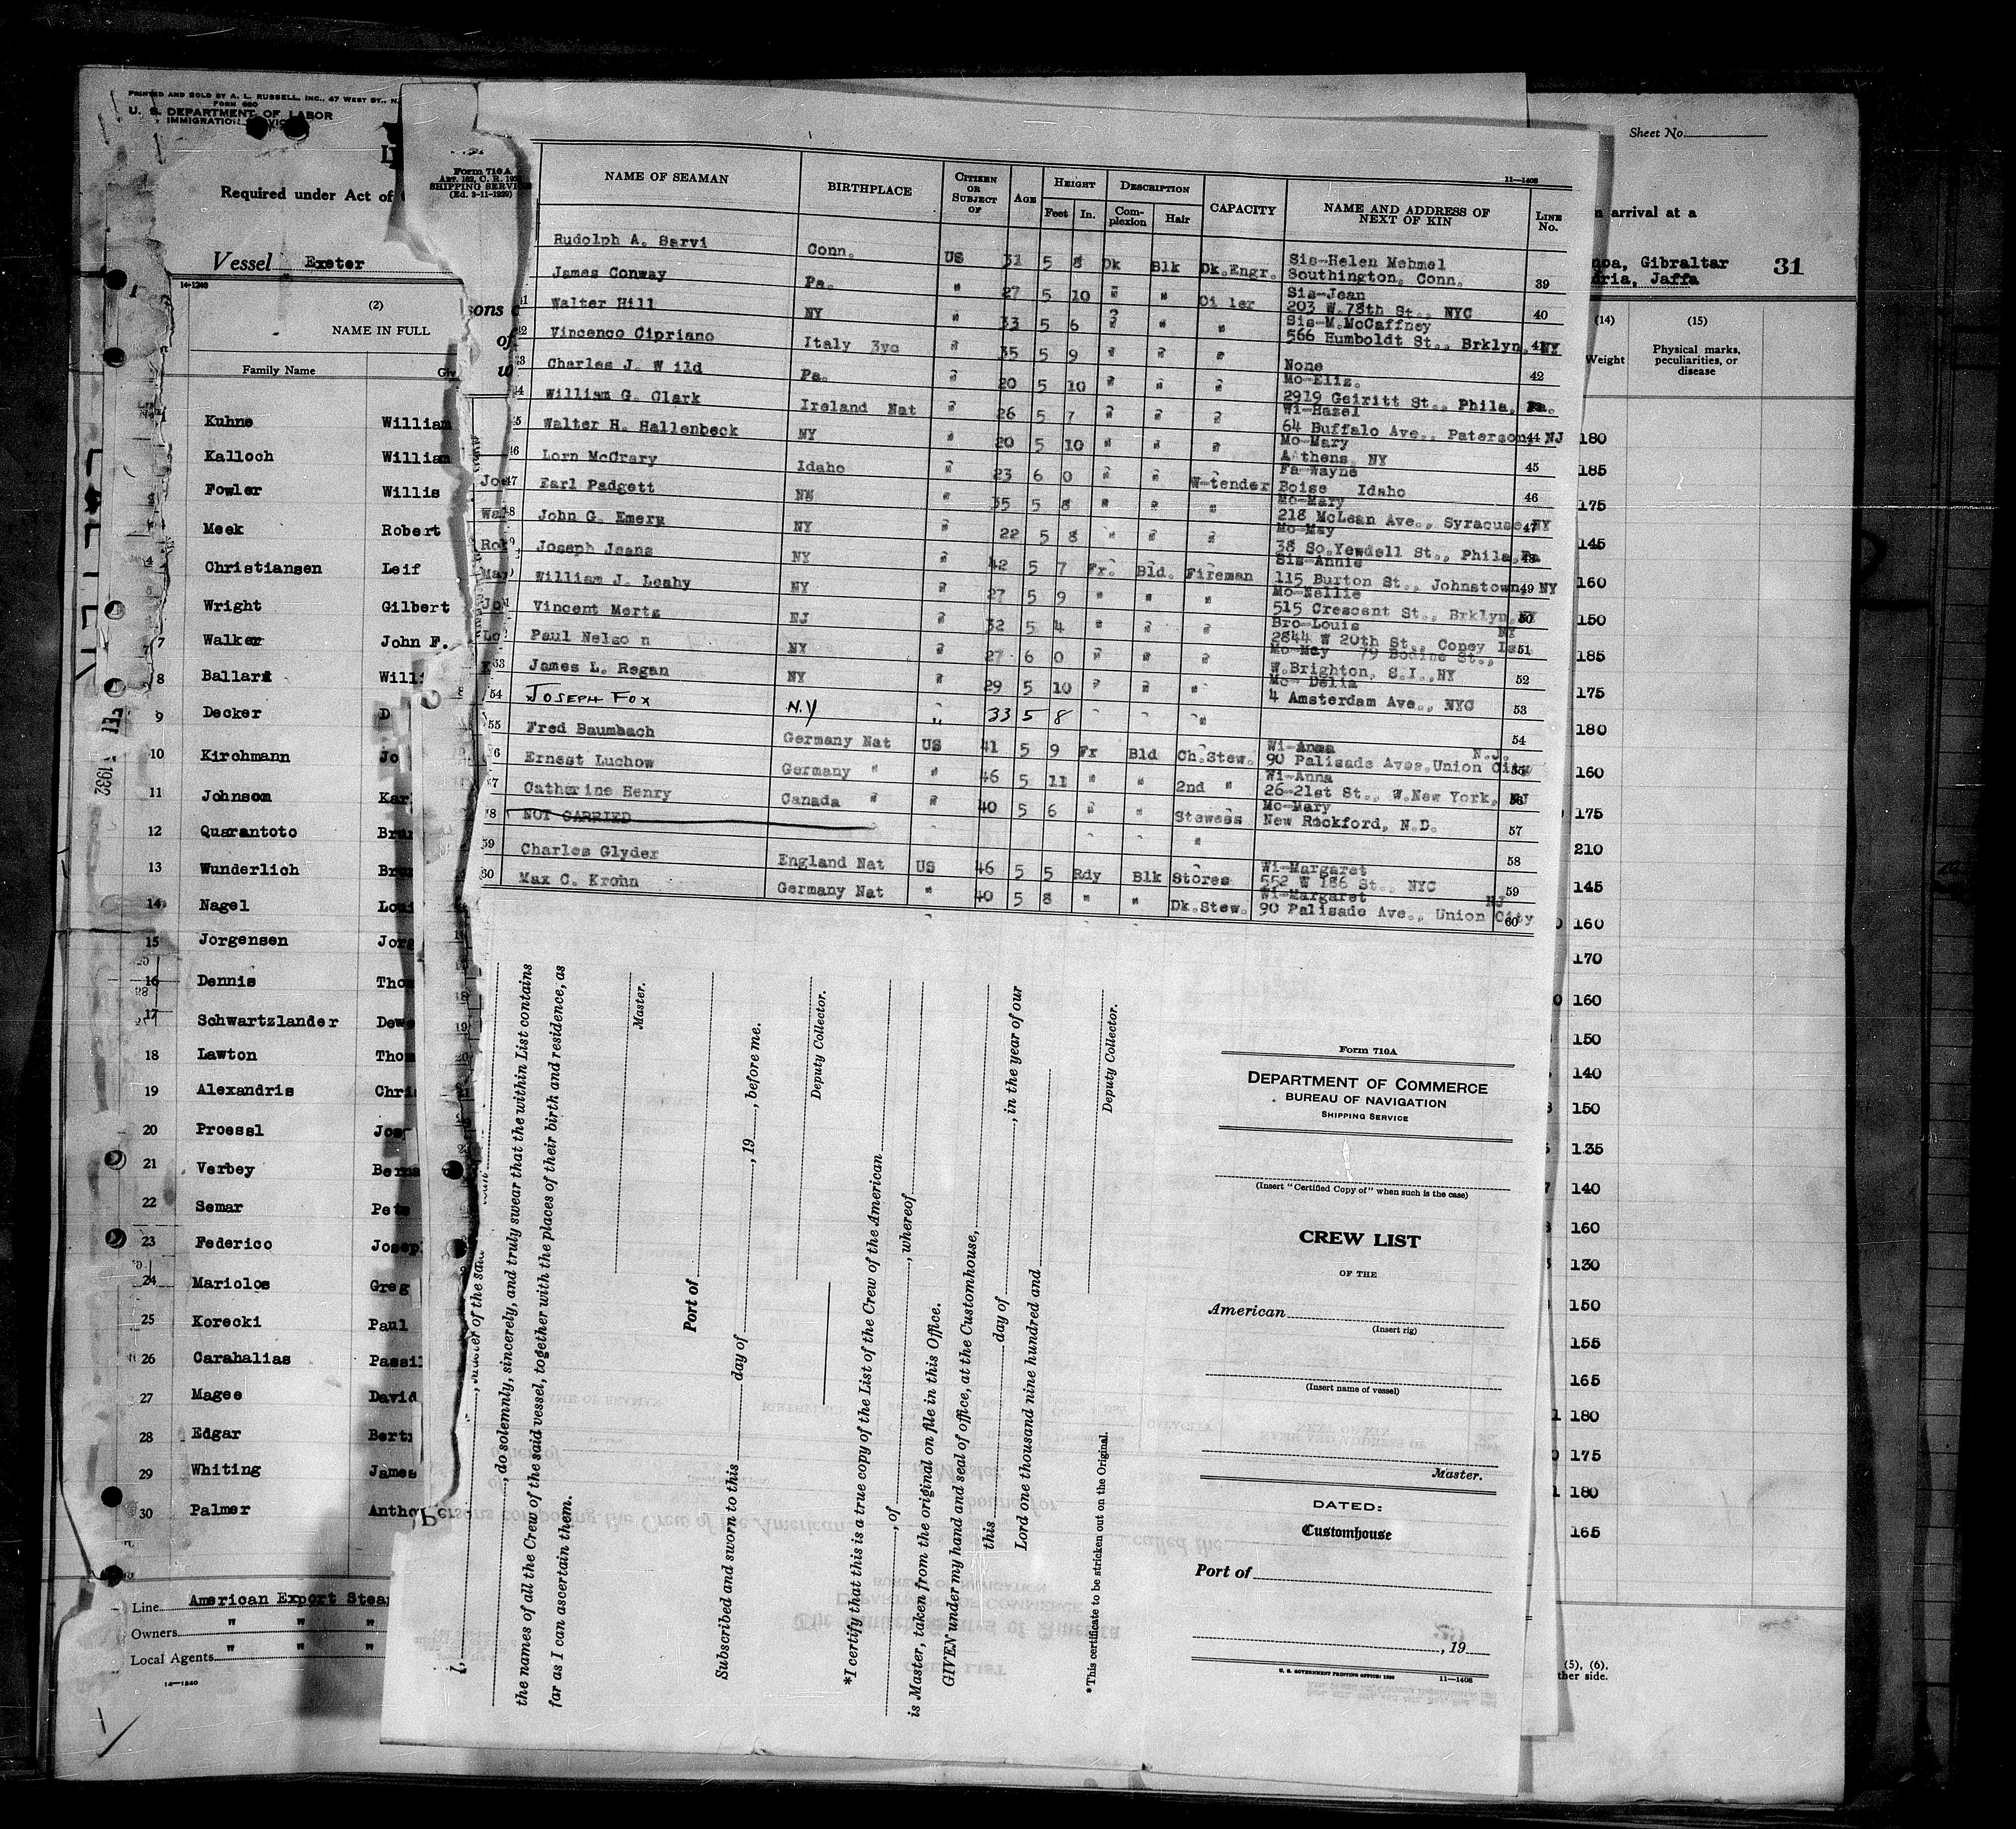 PRINTED AND SOLD BY A. L. RUSSELL, INC., 47 WEST ST., N.
FORM 680
U. S. DEPARTMENT OF LABOR
IMMIGRATION
Required under Act of
Vessel Exeter
14-1240
(2)
NAME IN FULL
Family Name
Kuhne William
Kalloch William
Fowler Willis
Meek Robert
4 Christiansen Leif
Wright Gilbert
7 Walker John F.
8 Ballard Willi
9 Decker D
10 Kirchmann Jo
11 Johnson Kar
12 Quarantoto Bru
13 Wunderlich Bru
14 Nagel Loui
15 Jorgensen Jorg
16 Dennis Thom
17 Schwartzlander Dewe
18 Lawton Thom
19 Alexandris Chri
20 Proessl Jos
21 Verbey Berna
22 Semar Pete
23 Federico Joseph
24 Mariolos Greg
25 Korecki Paul
26 Carahalias Passil
27 Magee David
28 Edgar Bert
29 Whiting James
30 Palmer Antho
Line American Export Stea
Owners " " "
Local Agents " " "
14-1240
Form 710A
ART. 163, C. R. 192
SHIPPING SERVICE
(Ed. 3-11-1929)
11-1408
NAME OF SEAMAN BIRTHPLACE CITIZEN OR SUBJECT OF AGE HEIGHT Feet In. DESCRIPTION Complexion Hair CAPACITY NAME AND ADDRESS OF NEXT OF KIN LINE No.
Rudolph A. Sarvi Conn. US 31 5 8 Dk Blk Dk.Engr. Sis-Helen Mehmel Southington, Conn. 39
James Conway Pa. " 27 5 10 " " Oiler Sis-Jean 203 W.78th St., NYC 40
Walter Hill NY " 33 5 6 " " " Sis-M.McCaffney 566 Humboldt St., Brklyn, NY 41
Vincenco Cipriano Italy 3yo " 35 5 9 " " " None 42
Charles J. W ild Pa. " 20 5 10 " " " Mo-Eliz. 2919 Geiritt St., Phila, Pa.
William G. Clark Ireland Nat " 26 5 7 " " " Wi-Hazel 64 Buffalo Ave., Paterson, NJ 44
Walter H. Hallenbeck NY " 20 5 10 " " " Mo-Mary Athens, NY 45
Lorn McCrary Idaho " 23 6 0 " " W-tender Fa-Wayne Boise Idaho 46
Earl Padgett " 35 5 8 " " " Mo-Mary 218 McLean Ave., Syracuse NY 47
John G. Emery NY " 22 5 8 " " " Mo-May 38 So.Yewdell St., Phila, Pa
Joseph Jeans NY " 42 5 7 Fr. Bld. Fireman Sis-Annie 115 Burton St., Johnstown, NY 49
William J. Leahy NY " 27 5 9 " " " Mo-Nellie 515 Crescent St., Brklyn, NY 50
Vincent Mertz NJ " 32 5 4 " " " Bro-Louis 2844 W 20th St., Coney Is. NY 51
Paul Nelso n NY " 27 6 0 " " " Mo-May 79 Bodine St., W.Brighton, S.I.,NY 52
James L. Regan NY " 29 5 10 " " " Mo- Delia 4 Amsterdam Ave., NYC 53
54 JOSEPH FOX N.Y " 33 5 8 " " " 54
55 Fred Baumbach Germany Nat US 41 5 9 Fr Bld Ch.Stew. Wi-Anna 90 Palisade Ave.Union City N.J. 55
Ernest Luchow Germany " " 46 5 11 " " 2nd " Wi-Anna 26-21st St., W.New York, NJ 56
Catharine Henry Canada " " 40 5 6 " " Stewess Mo-Mary New Rockford, N.D. 57
NOT CARRIED 58
59 Charles Glyder England Nat US 46 5 5 Rdy Blk Stores Wi-Margaret 552 W 186 St., NYC 59
Max C. Krohn Germany Nat " 40 5 8 " " Dk.Stew. Wi-Margaret 90 Palisade Ave., Union City NJ 60
I, , Master of the said
, do solemnly, sincerely, and truly swear that the within List contains
the names of all the Crew of the said vessel, together with the places of their birth and residence, as
far as I can ascertain them.
Master.
Port of
Subscribed and sworn to this day of , 19 , before me.
Deputy Collector.
*I certify that this is a true copy of the List of the Crew of the American
, of , whereof
is Master, taken from the original on file in this Office.
GIVEN under my hand and seal of office, at the Customhouse,
this day of , in the year of our
Lord one thousand nine hundred and
Deputy Collector.
*This certificate to be stricken out on the Original.
Form 710A
DEPARTMENT OF COMMERCE
BUREAU OF NAVIGATION
SHIPPING SERVICE
(Insert "Certified Copy of" when such is the case)
CREW LIST
OF THE
American
(Insert rig)
(Insert name of vessel)
Master.
DATED:
Customhouse
Port of
, 19
U. S. GOVERNMENT PRINTING OFFICE: 1930 11-1408
Sheet No.
n arrival at a
noa, Gibraltar
dria, Jaffa
31
(14) (15)
Weight Physical marks, peculiarities, or disease
180
185
175
145
160
150
185
175
180
160
175
210
145
160
170
160
150
140
150
135
140
160
130
150
155
165
180
175
180
165
(5), (6).
ther side.